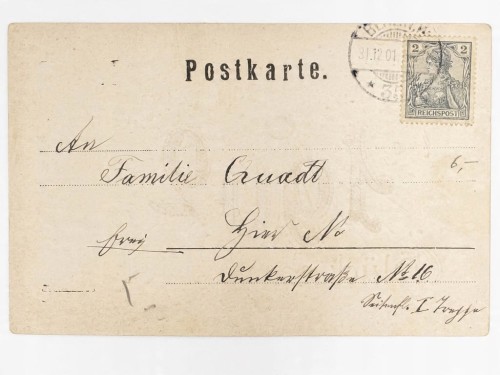 Postkarte.
31.12.01
2 2
REICHSPOST
An
Familie Quadt
6,-
Hier No
Dunkerstraße No 16
I Treppe